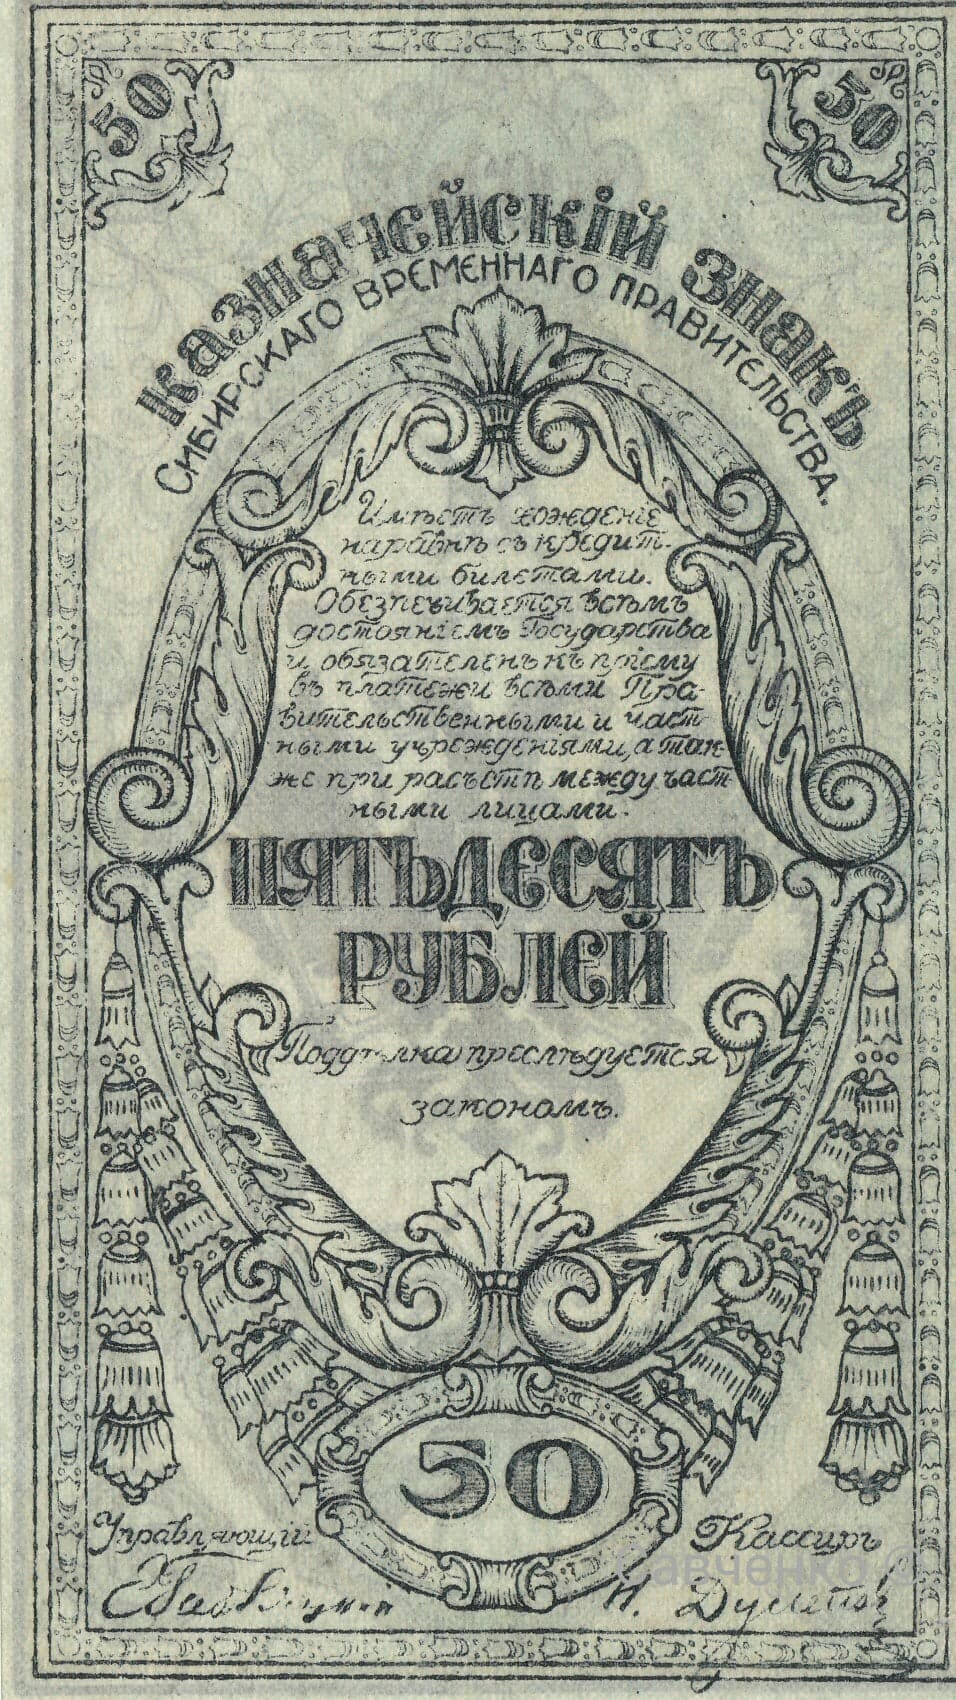 50
50
Казначейскій Знакъ
Сибирскаго Временнаго Правительства.
Имѣетъ хожденіе
наравнѣ съ кредит-
ными билетами.
Обезпечивается всѣмъ
достояніемъ Государства
и обязателенъ къ пріему
въ платежи всѣми Пра-
вительственными и част-
ными учрежденіями, а так-
же при расчетѣ между част-
ными лицами.
ПЯТЬДЕСЯТЪ
РУБЛЕЙ
Поддѣлка преслѣдуется
закономъ.
50
Управляющій
Кассиръ
Савченко